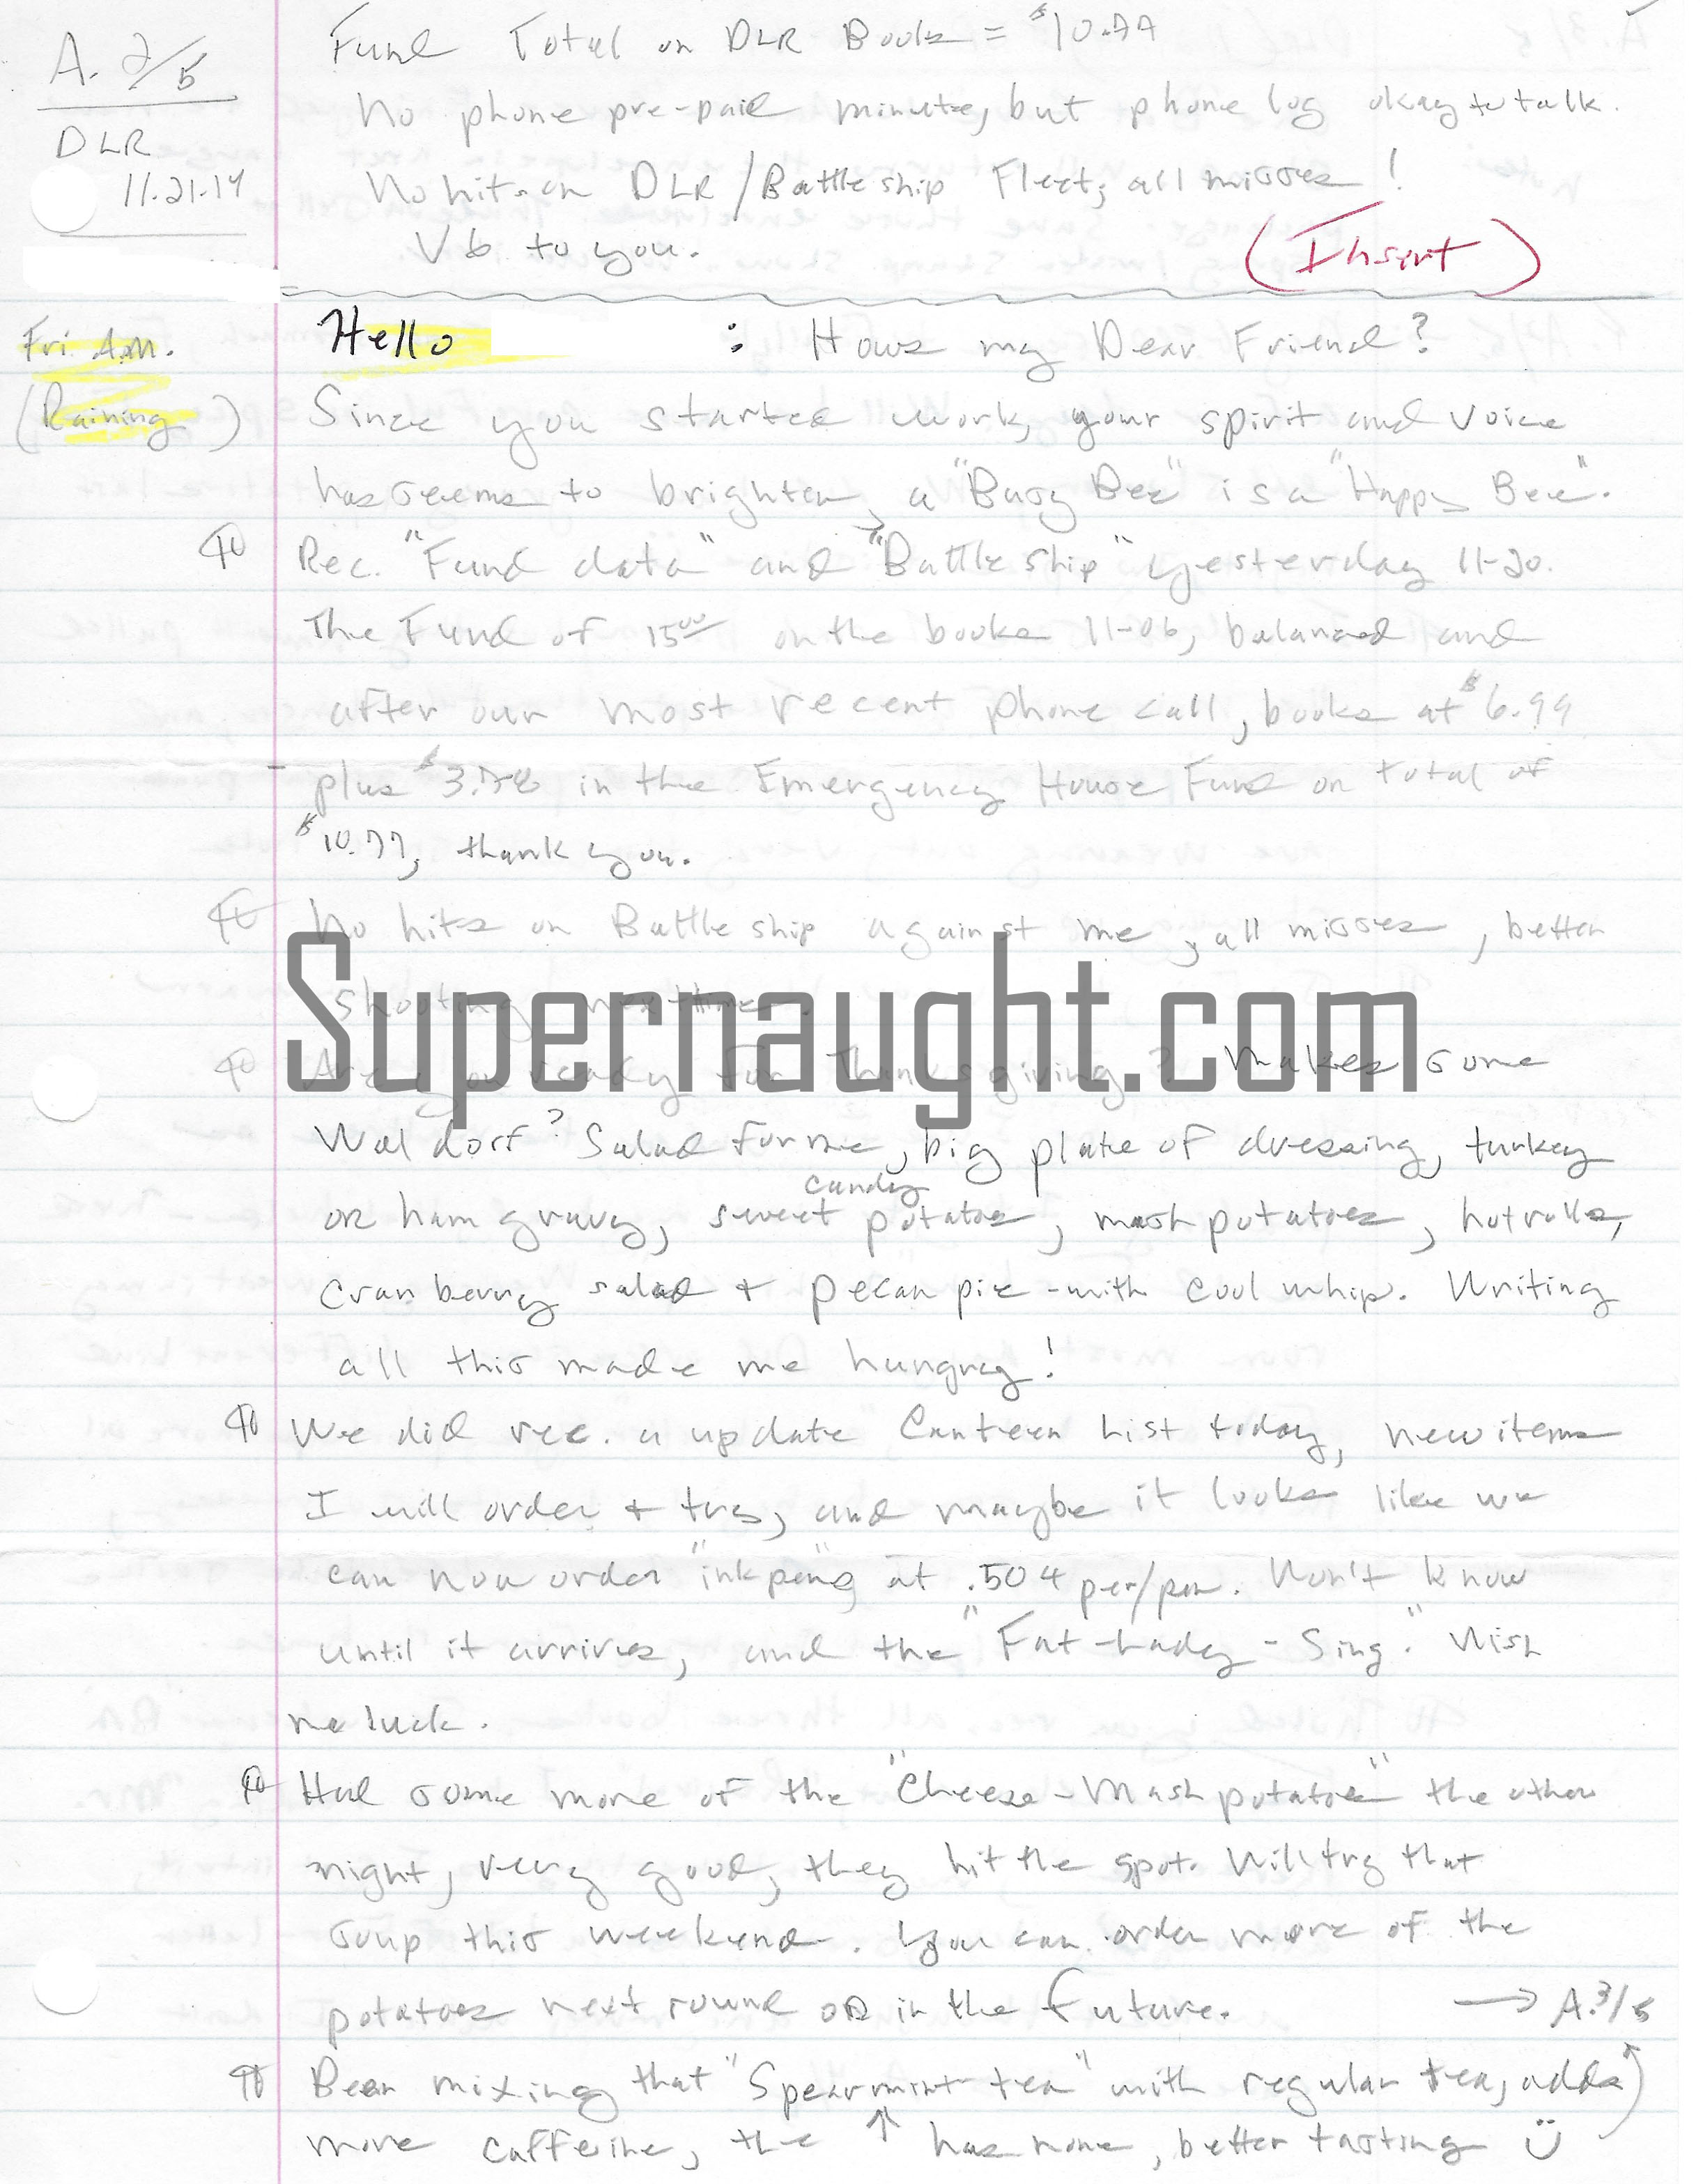 A. 2/5
DLR
11.21.14
Fund Total on DLR Books = $10.77
No phone pre-paid minutes, but phone log okay to talk.
No hits on DLR/Battleship Fleet, all misses!
V6 to you.
(Insert)
Fri. A.M.
(Raining)
Hello : Hows my Dear Friend?
Since you started work, your spirit and voice
has seems to brighten, a "Busy Bee" is a "Happy Bee".
¶ Rec. "Fund data" and "Battleship" yesterday 11-20.
The Fund of 15⁰⁰ on the books 11-06, balanced and
after our most recent phone call, books at $6.99
plus $3.78 in the Emergency House Fund on total of
$10.77, thank you.
¶ No hits on Battleship against me, all misses, better
shooting next time.
Supernaught.com
¶ Are you ready for Thanksgiving? Makes some
Waldorf? Salad for me, big plate of dressing, turkey
or ham gravy, sweet candy potatoes, mash potatoes, hot rolls,
cranberry salad + pecan pie - with cool whip. Writing
all this made me hungry!
¶ We did rec. a update Canteen List today, new items
I will order + try, and maybe it looks like we
can now order "ink pens" at .50¢ per/pen. Won't know
until it arrives, and the "Fat-Lady-Sing." Wish
me luck.
¶ Had some more of the "Cheese-Mash potatoes" the other
night, very good, they hit the spot. Will try that
soup this weekend. You can order more of the
potatoes next round or in the future. → A.3/5
¶ Been mixing that "Spearmint tea" with regular tea, adds
more caffeine, the ↑ has none, better tasting